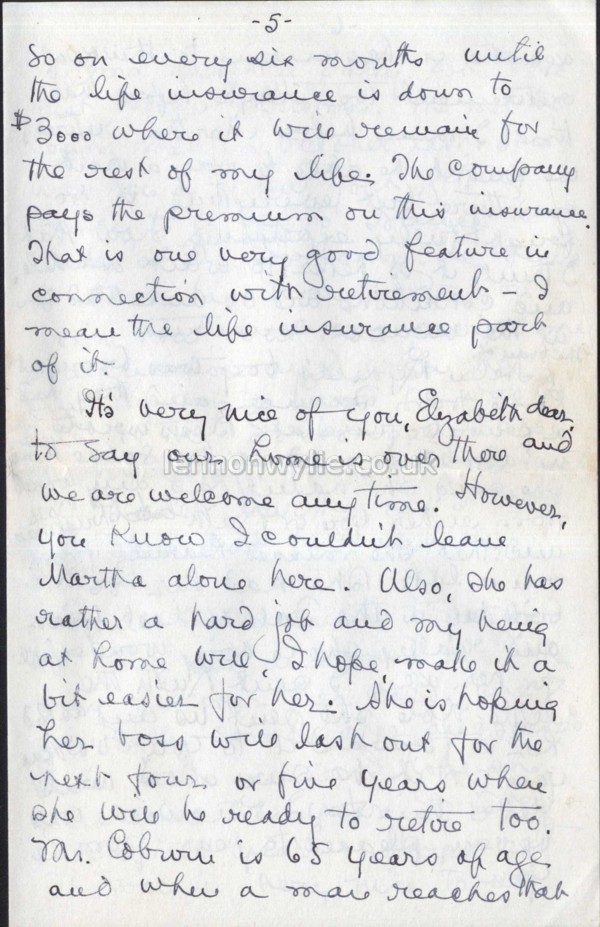 -5-
so on every six months until
the life insurance is down to
$3000 where it will remain for
the rest of my life. The Company
pays the premium on this insurance.
That is one very good feature in
connection with retirement - I
mean the life insurance part
of it.
It's very nice of you, Elizabeth dear,
to say our home is over there and
lennonwylie.co.uk
we are welcome any time. However,
you know I couldn't leave
Martha alone here. Also, she has
rather a hard job and my being
at home will, I hope, make it a
bit easier for her. She is hoping
her boss will last out for the
next four or five years when
she will be ready to retire too.
Mr. is 65 years of age
and when a man reaches that